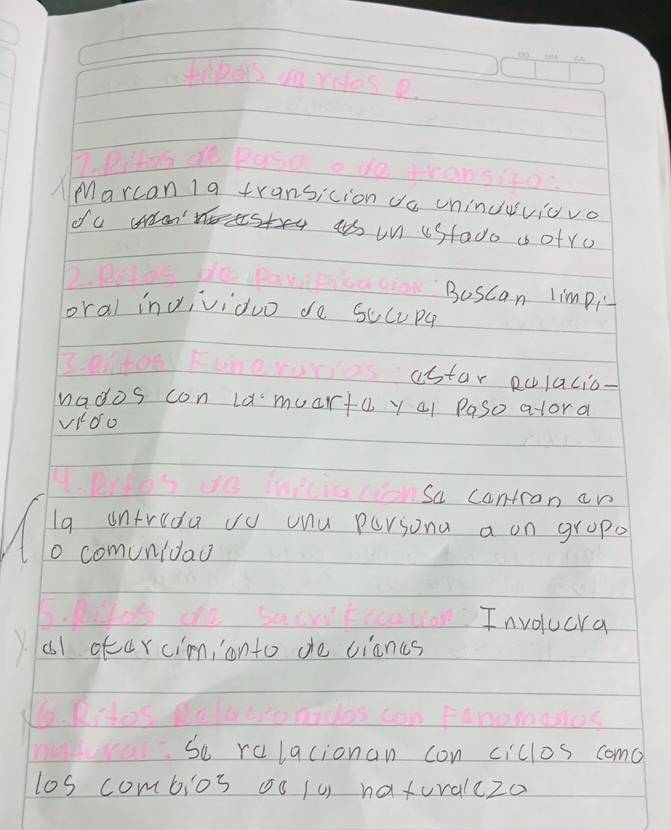 tipos de ritos R.
1. Ritos de paso o de transito:
Marcan la transicion de un individuo
de un estado a otro
2. Ritos de purificación: Buscan limpi-
ar al individuo de su culpa
3. Ritos Funerarios: estar relacio-
nados con la muerte y el paso a la otra
vida
4. Ritos de iniciación se centran en
la entrada de una persona a un grupo
o comunidad
5. Ritos de sacrificacion: Involucra
el ofercimiento de vienes
6. Ritos Relacionados con Fenomenos
natural: Se relacionan con ciclos como
los cambios de la naturaleza